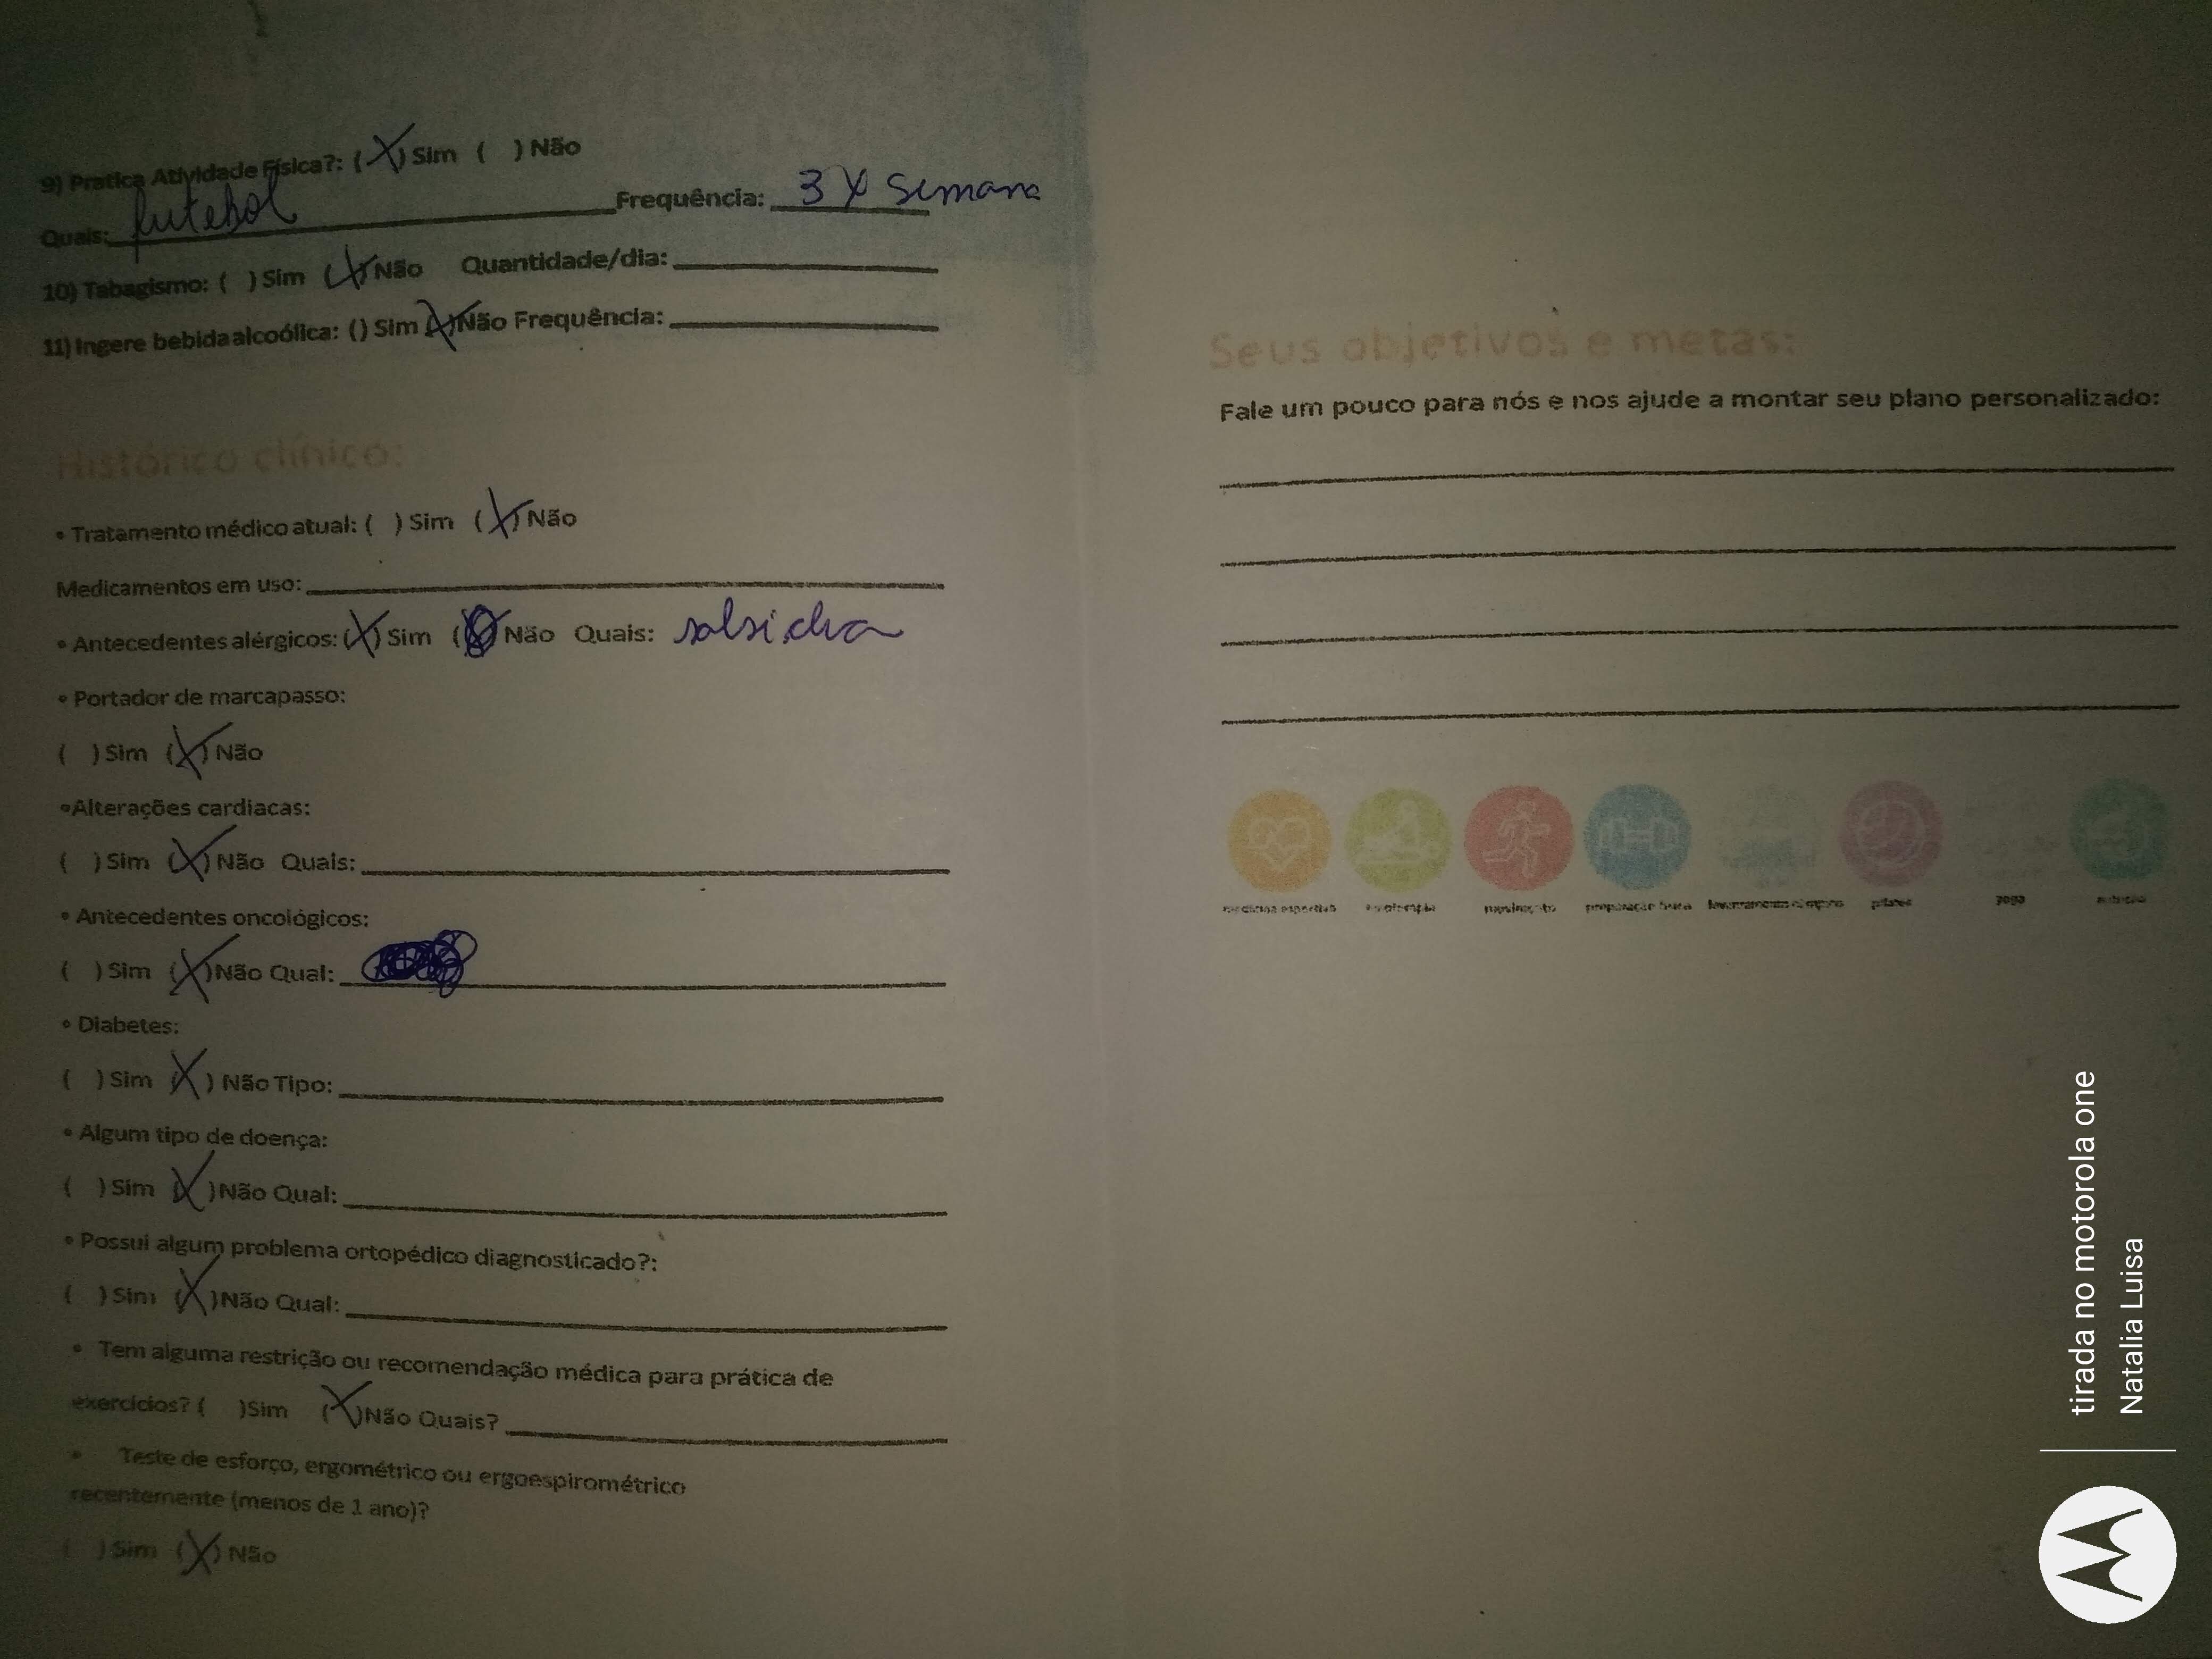 9) Pratica Atividade Física?: (X) Sim ( ) Não
Quais: futebol Frequência: 3 x semana
10) Tabagismo: ( ) Sim (X) Não Quantidade/dia:
11) Ingere bebida alcoólica: () Sim (X) Não Frequência:
Histórico clínico:
• Tratamento médico atual: ( ) Sim (X) Não
Medicamentos em uso:
• Antecedentes alérgicos: (X) Sim ( ) Não Quais: salsicha
• Portador de marcapasso:
( ) Sim (X) Não
• Alterações cardíacas:
( ) Sim (X) Não Quais:
• Antecedentes oncológicos:
( ) Sim (X) Não Qual:
• Diabetes:
( ) Sim (X) Não Tipo:
• Algum tipo de doença:
( ) Sim (X) Não Qual:
• Possui algum problema ortopédico diagnosticado?:
( ) Sim (X) Não Qual:
• Tem alguma restrição ou recomendação médica para prática de
exercícios? ( ) Sim (X) Não Quais?
• Teste de esforço, ergométrico ou ergoespirométrico
recentemente (menos de 1 ano)?
( ) Sim (X) Não
Seus objetivos e metas:
Fale um pouco para nós e nos ajude a montar seu plano personalizado:
medicina esportiva fisioterapia preparação física pilates yoga
tirada no motorola one
Natalia Luisa